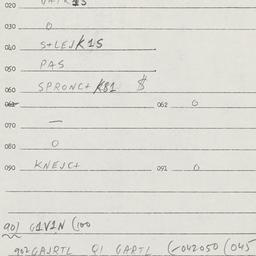 020
030 0
040 S+LEJK1S
050 PAS
060 SPRONC+ K81 $
061 062 0
070 —
080 0
090 KNEJC+ 091 0
901 G1V1N (100
902 GAJRTL QI GARTL (-042050 (045